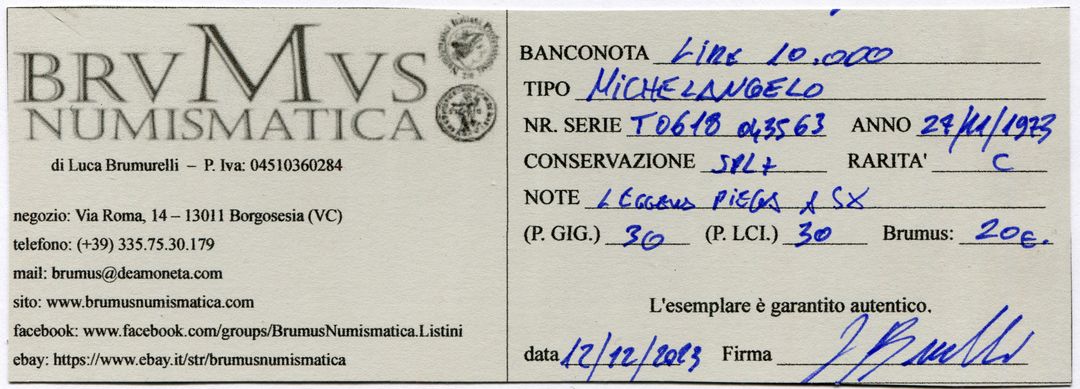 BRVMVS
NUMISMATICA
di Luca Brumurelli – P. Iva: 04510360284
negozio: Via Roma, 14 – 13011 Borgosesia (VC)
telefono: (+39) 335.75.30.179
mail: brumus@deamoneta.com
sito: www.brumusnumismatica.com
facebook: www.facebook.com/groups/BrumusNumismatica.Listini
ebay: https://www.ebay.it/str/brumusnumismatica
BANCONOTA LIRE 10.000
TIPO MICHELANGELO
NR. SERIE T0618 043563 ANNO 27/11/1973
CONSERVAZIONE SPL+ RARITA' C
NOTE PIEGA A SX
(P. GIG.) 30 (P. LCI.) 30 Brumus: 20€.
L'esemplare è garantito autentico.
data 12/12/2023 Firma